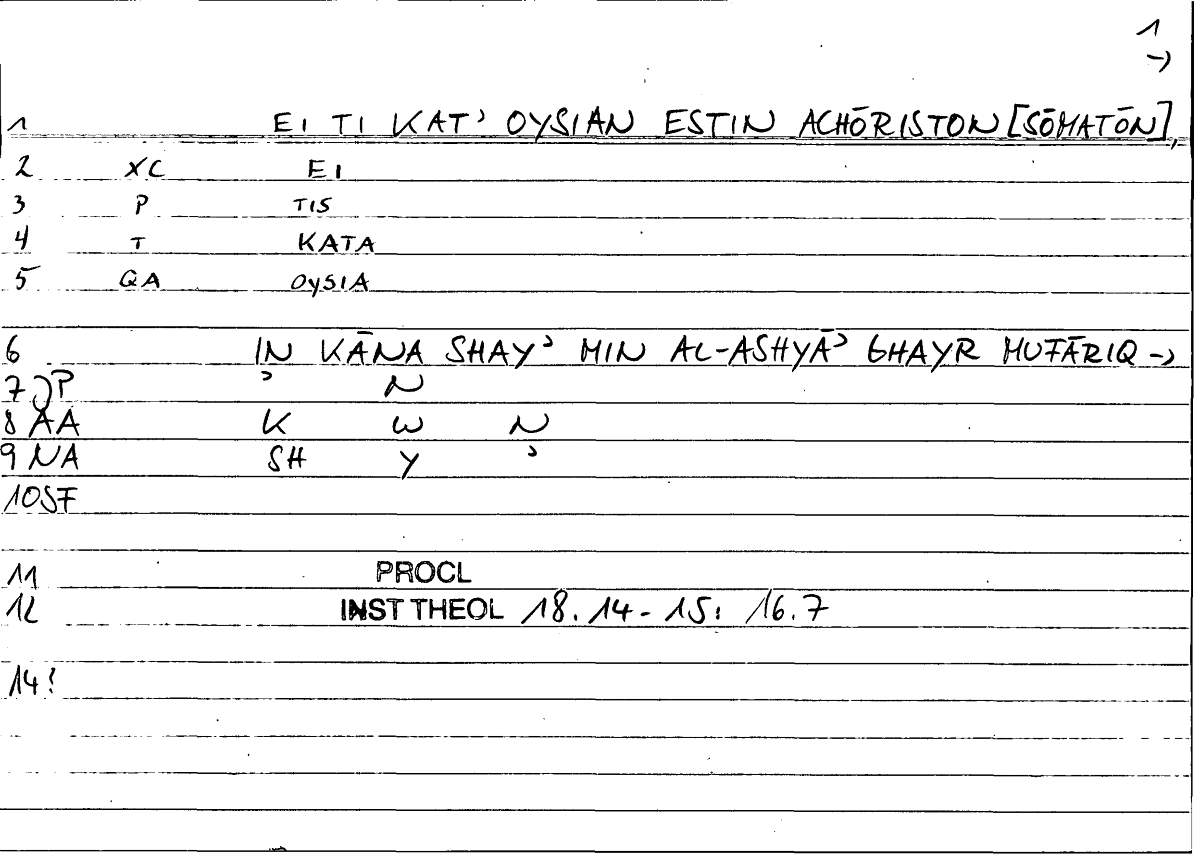 1
→
1 EI TI KAT' OYSIAN ESTIN ACHŌRISTON [SŌMATŌN],
2 XC EI
3 P TIS
4 T KATA
5 QA OYSIA
6 IN KĀNA SHAYʾ MIN AL-ASHYĀʾ GHAYR MUFĀRIQ →
7 JP ʾ N
8 AA K W N
9 NA SH Y ʾ
10 SF
11 PROCL
12 INST THEOL 18.14-15: 16.7
14?